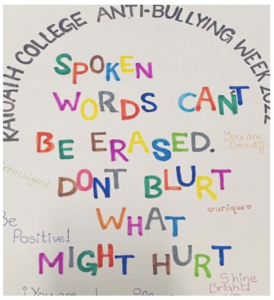 COLLEGE ANTI-BULLYING WEEK
SPOKEN
WORDS CAN'T
BE ERASED.
You are
Beauty!
Intelligent
DONT BLURT
♡unique♡
WHAT
Be
Positive!
MIGHT HURT
Shine
Bright!
You are
one